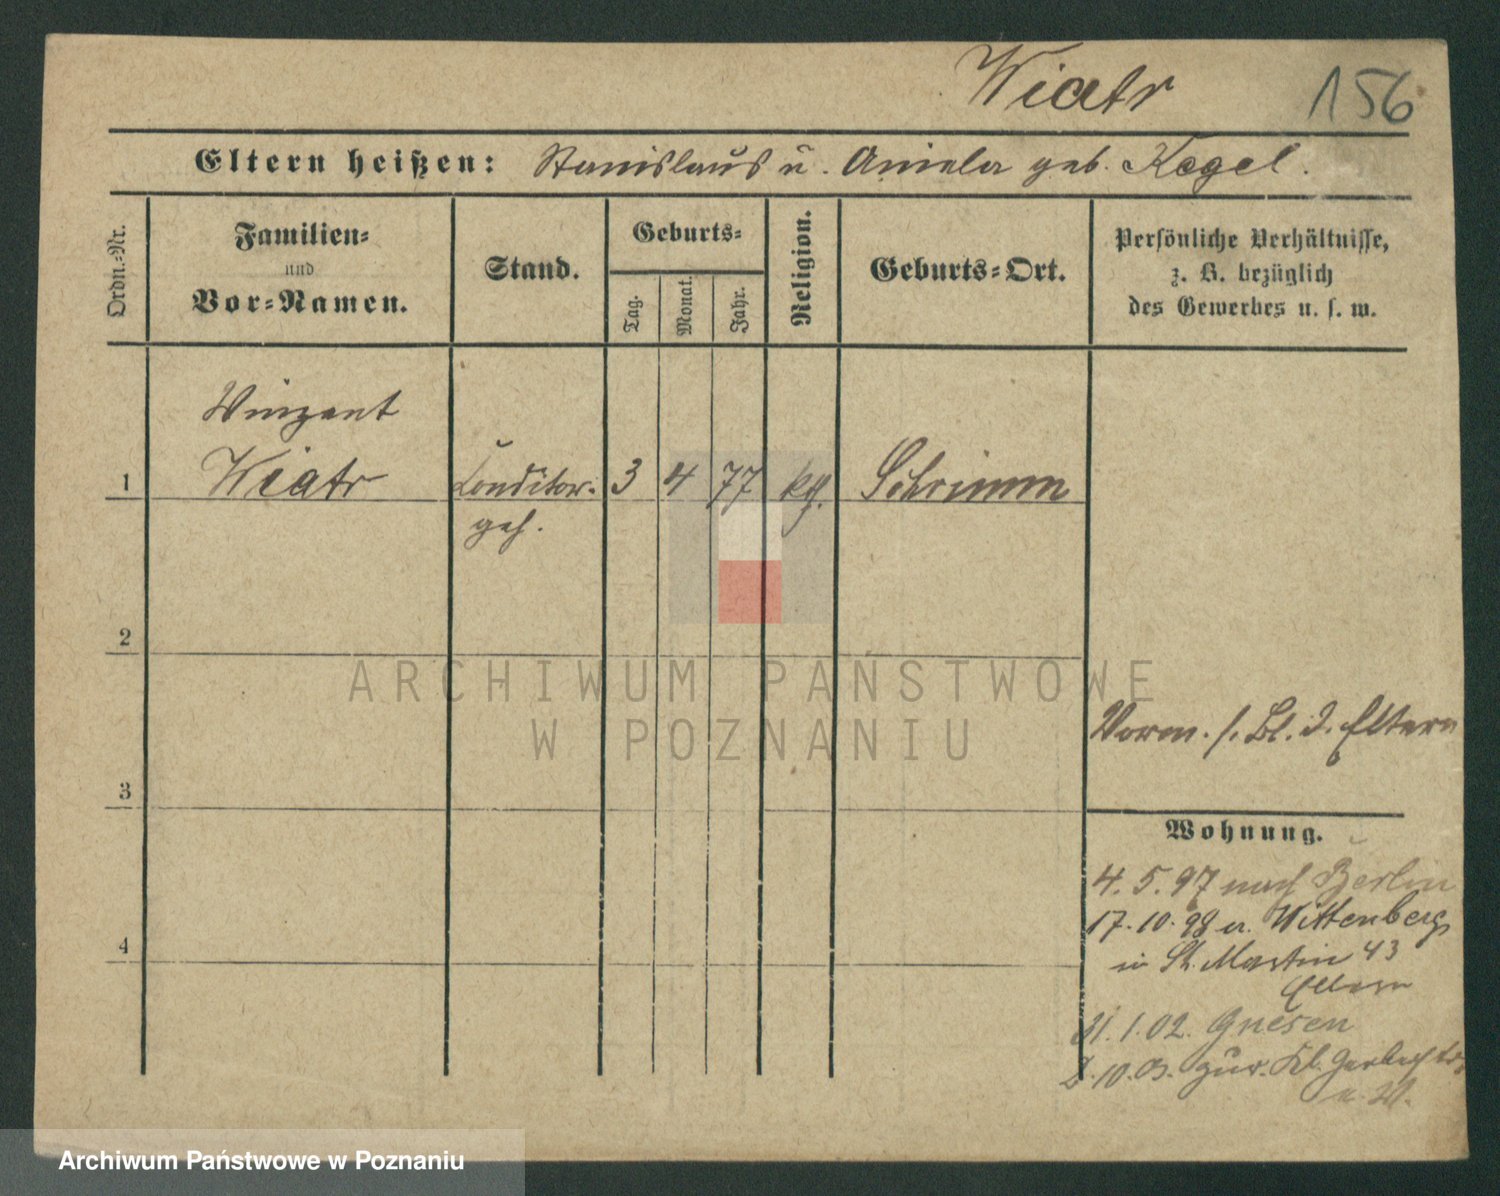 Wiatr 156
Eltern heißen: Stanislaus u. Aniela geb. Kegel.
Ordn.-Nr.
Familien-
und
Vor-Namen.
Stand.
Geburts-
Tag.
Monat.
Jahr.
Religion.
Geburts-Ort.
Persönliche Verhältnisse,
z. B. bezüglich
des Gewerbes u. s. w.
Winzent
1 Wiatr Conditor- 3 4 77 kth. Schrimm
geh.
2
3
4
Vorm. s. Bl. d. Eltern
Wohnung.
4.5.97 nach Berlin
17.10.98 a. Wittenberg
in St. Martin 43
Eltern
31.1.02. Gnesen
2.10.03. zur. Kl. Gerberstr.
ARCHIWUM PAŃSTWOWE
W POZNANIU
Archiwum Państwowe w Poznaniu